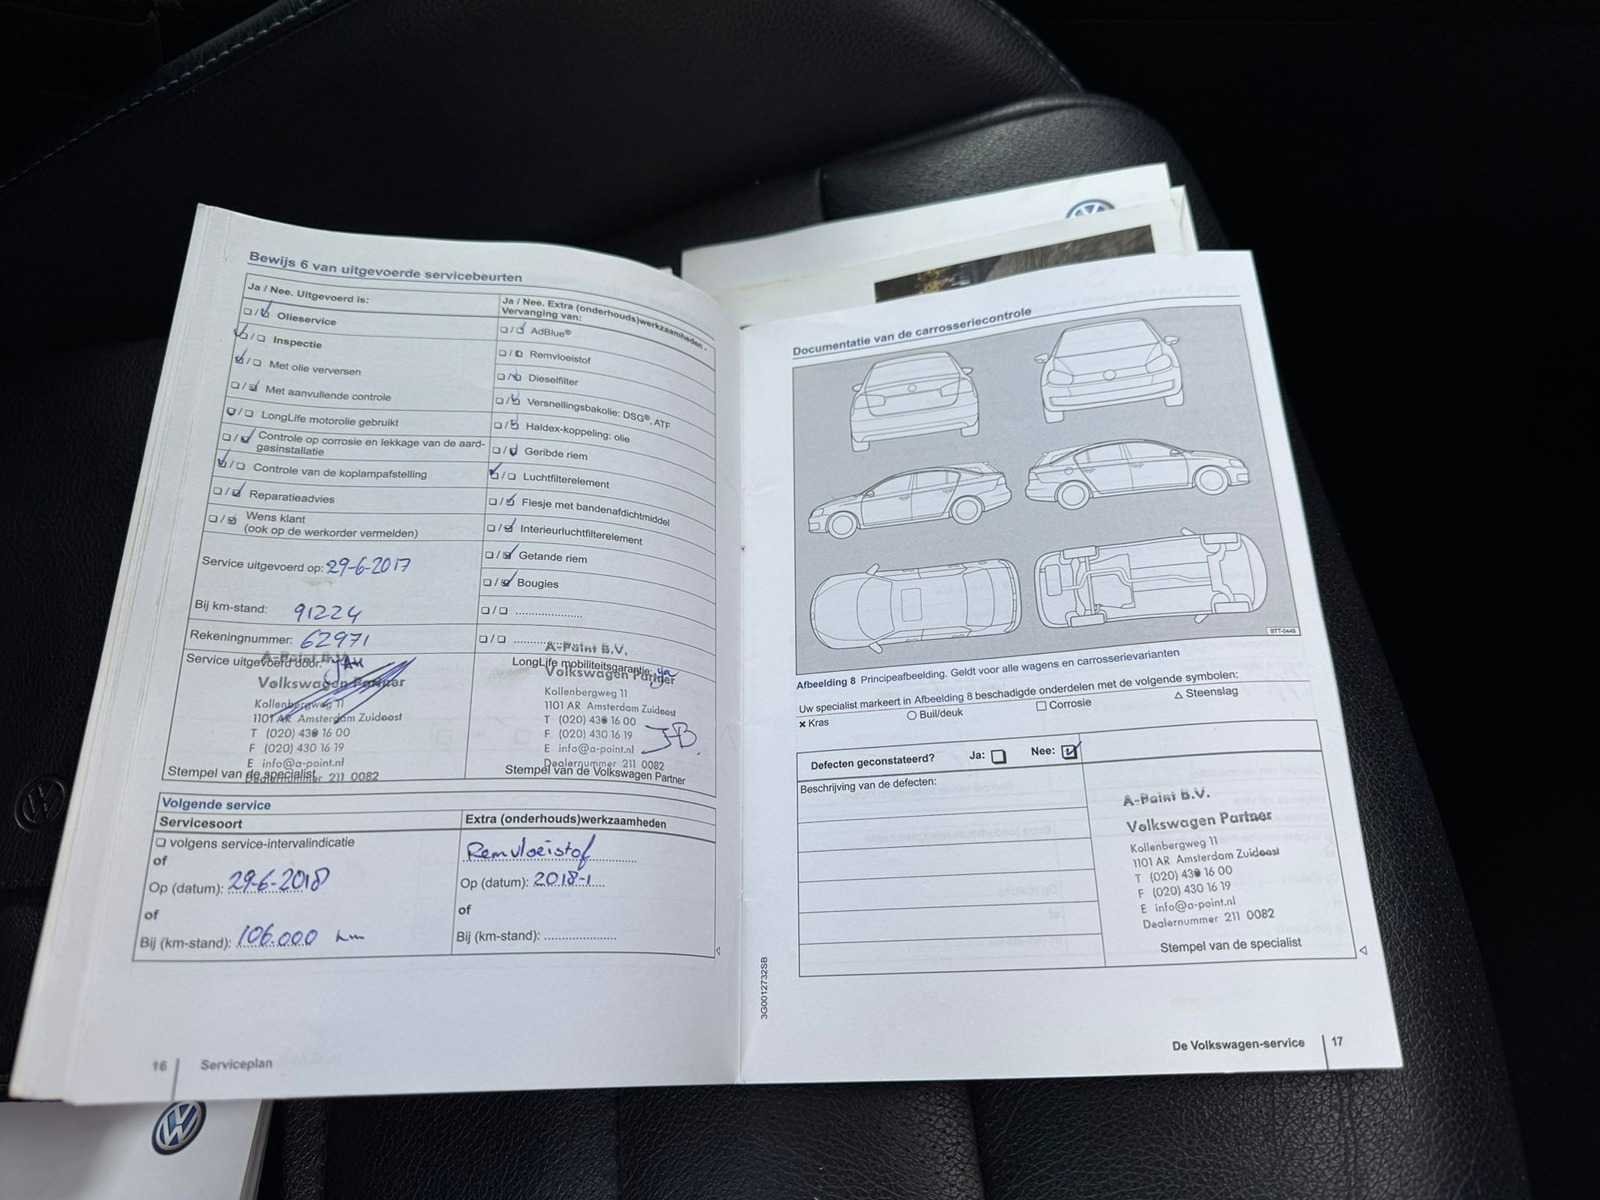 Bewijs 6 van uitgevoerde servicebeurten
Ja / Nee. Uitgevoerd is:
Olieservice
Inspectie
Met olie verversen
Met aanvullende controle
LongLife motorolie gebruikt
Controle op corrosie en lekkage van de aard-
gasinstallatie
Controle van de koplampafstelling
Reparatieadvies
Wens klant
(ook op de werkorder vermelden)
Service uitgevoerd op: 29-6-2017
Bij km-stand: 91224
Rekeningnummer: 62971
Service uitgevoerd door:
A-Point B.V.
Volkswagen Partner
Kollenbergweg 11
1101 AR Amsterdam Zuidoost
T (020) 430 16 00
F (020) 430 16 19
E info@a-point.nl
Dealernummer 211 0082
Stempel van de specialist
Ja / Nee. Extra (onderhouds)werkzaamheden -
Vervanging van:
AdBlue®
Remvloeistof
Dieselfilter
Versnellingsbakolie: DSG®, ATF
Haldex-koppeling: olie
Geribde riem
Luchtfilterelement
Flesje met bandenafdichtmiddel
Interieurluchtfilterelement
Getande riem
Bougies
A-Point B.V.
LongLife mobiliteitsgarantie: ja
Volkswagen Partner
Kollenbergweg 11
1101 AR Amsterdam Zuidoost
T (020) 430 16 00
F (020) 430 16 19
E info@a-point.nl
Dealernummer 211 0082
J-B.
Stempel van de Volkswagen Partner
Volgende service
Servicesoort
volgens service-intervalindicatie
of
Op (datum): 29-6-2018
of
Bij (km-stand): 106.000 km
Extra (onderhouds)werkzaamheden
Remvloeistof
Op (datum): 2018-1
of
Bij (km-stand):
16 Serviceplan
Documentatie van de carrosseriecontrole
BTT-0449
Afbeelding 8 Principeafbeelding. Geldt voor alle wagens en carrosserievarianten
Uw specialist markeert in Afbeelding 8 beschadigde onderdelen met de volgende symbolen:
× Kras ○ Buil/deuk □ Corrosie △ Steenslag
Defecten geconstateerd? Ja: Nee:
Beschrijving van de defecten:
A-Point B.V.
Volkswagen Partner
Kollenbergweg 11
1101 AR Amsterdam Zuidoost
T (020) 430 16 00
F (020) 430 16 19
E info@a-point.nl
Dealernummer 211 0082
Stempel van de specialist
3G0012732SB
De Volkswagen-service 17